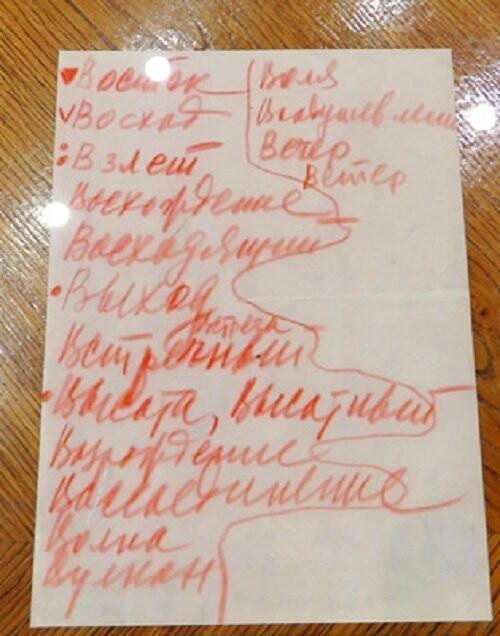 Восток
Восход
Взлет
Восхождение
Восходящий
Выход
Встреча
Встречный
Высота,
Возрождение
Воссоединение
Волна
Вулкан
Воля
Воодушевление
Вечер
Ветер